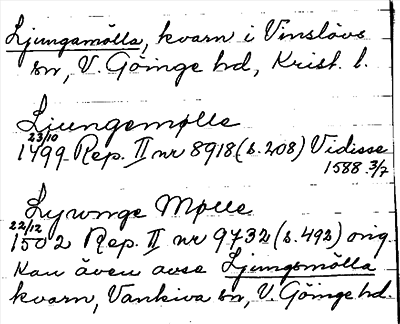 Ljungamölla, kvarn i Vinslövs
sn, V. Göinge hd, Krist. l.
Ljungemølle
23/10
1499 Rep. II nr 8918 (s. 208) Vidisse
1588 3/7
Lywnge Mølle
22/12
1502 Rep. II nr 9732 (s. 492) orig
Kan även avse Ljungsmölla
kvarn, Vankiva sn, V. Göinge hd.